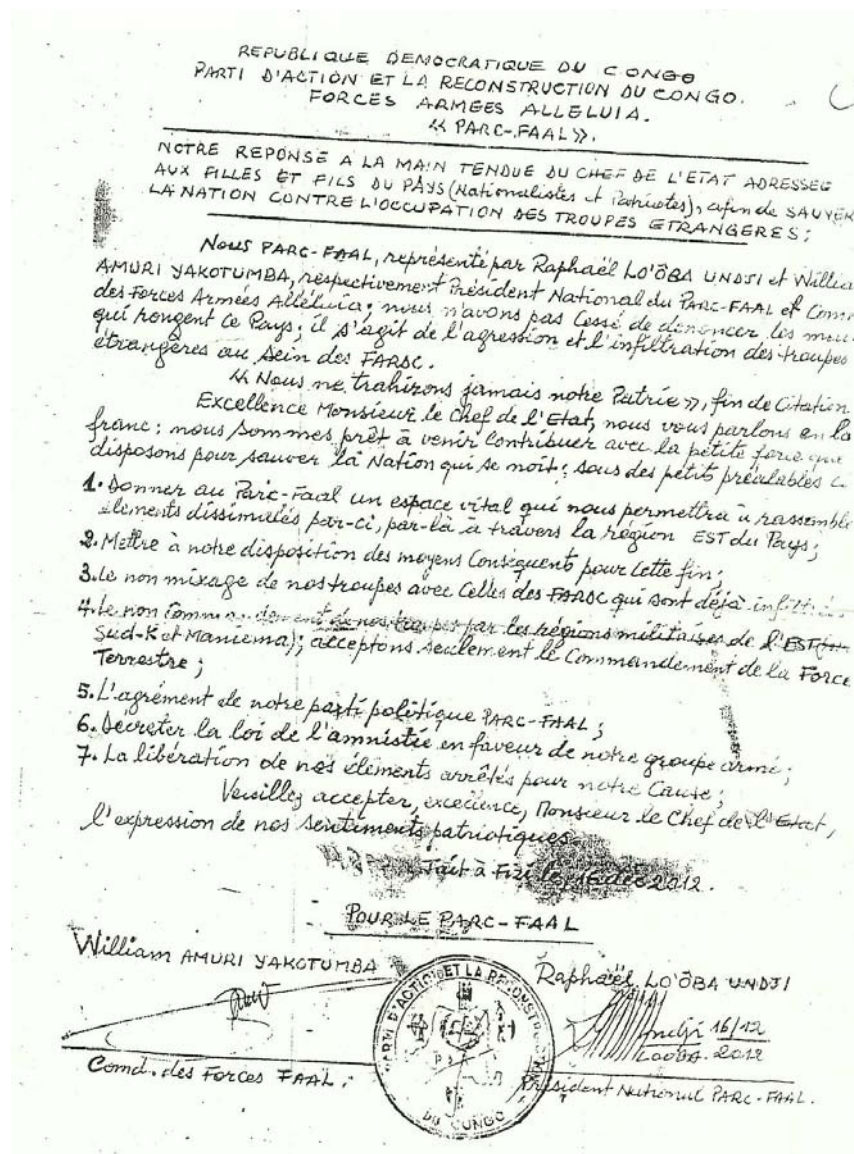 REPUBLIQUE DEMOCRATIQUE DU CONGO
PARTI D'ACTION ET LA RECONSTRUCTION DU CONGO.
FORCES ARMEES ALLELUIA.
« PARC-FAAL ».
NOTRE REPONSE A LA MAIN TENDUE DU CHEF DE L'ETAT ADRESSEE
AUX FILLES ET FILS DU PAYS (Nationalistes et Patriotes), afin de SAUVER
LA NATION CONTRE L'OCCUPATION DES TROUPES ETRANGERES;
Nous PARC-FAAL, représenté par Raphaël LO'ÔBA UNDJI et Willia
AMURI YAKOTUMBA, respectivement Président National du PARC-FAAL et Com
des Forces Armées Alléluia; nous n'avons pas cessé de dénoncer les
qui rongent ce Pays; il s'agit de l'agression et l'infiltration des troupes
étrangères au sein des FARDC.
« Nous ne trahirons jamais notre Patrie », fin de Citation
Excellence Monsieur le Chef de l'Etat, nous vous parlons en la
franc: nous sommes prêt à venir contribuer avec la petite force que
disposons pour sauver la Nation qui se noit; sous des petits préalables
1. Donner au Parc-Faal un espace vital qui nous permettra à rassemble
éléments dissimulés par-ci, par-là à travers la région EST du Pays;
2. Mettre à notre disposition des moyens Conséquents pour cette fin;
3. Le non mixage de nos troupes avec Celles des FARDC qui sont déjà
4. Le non Commandement de nos troupes par les régions militaires de l'EST
Sud-K et Maniema); acceptons seulement le Commandement de la Force
Terrestre;
5. L'agrément de notre parti politique PARC-FAAL;
6. Décréter la loi de l'amnistie en faveur de notre groupe armé;
7. La libération de nos éléments arrêtés pour notre Cause;
Veuillez accepter, excellence, Monsieur le Chef de l'Etat,
l'expression de nos sentiments patriotiques.
Fait à Fizi le, 16 déc 2012.
POUR LE PARC-FAAL
William AMURI YAKOTUMBA
Raphaël LO'ÔBA UNDJI
PARTI D'ACTION ET LA RECONSTRUCTION
DU CONGO
undji 16/12
LOOBA. 2012
Comd. des Forces FAAL.
Président National PARC-FAAL.